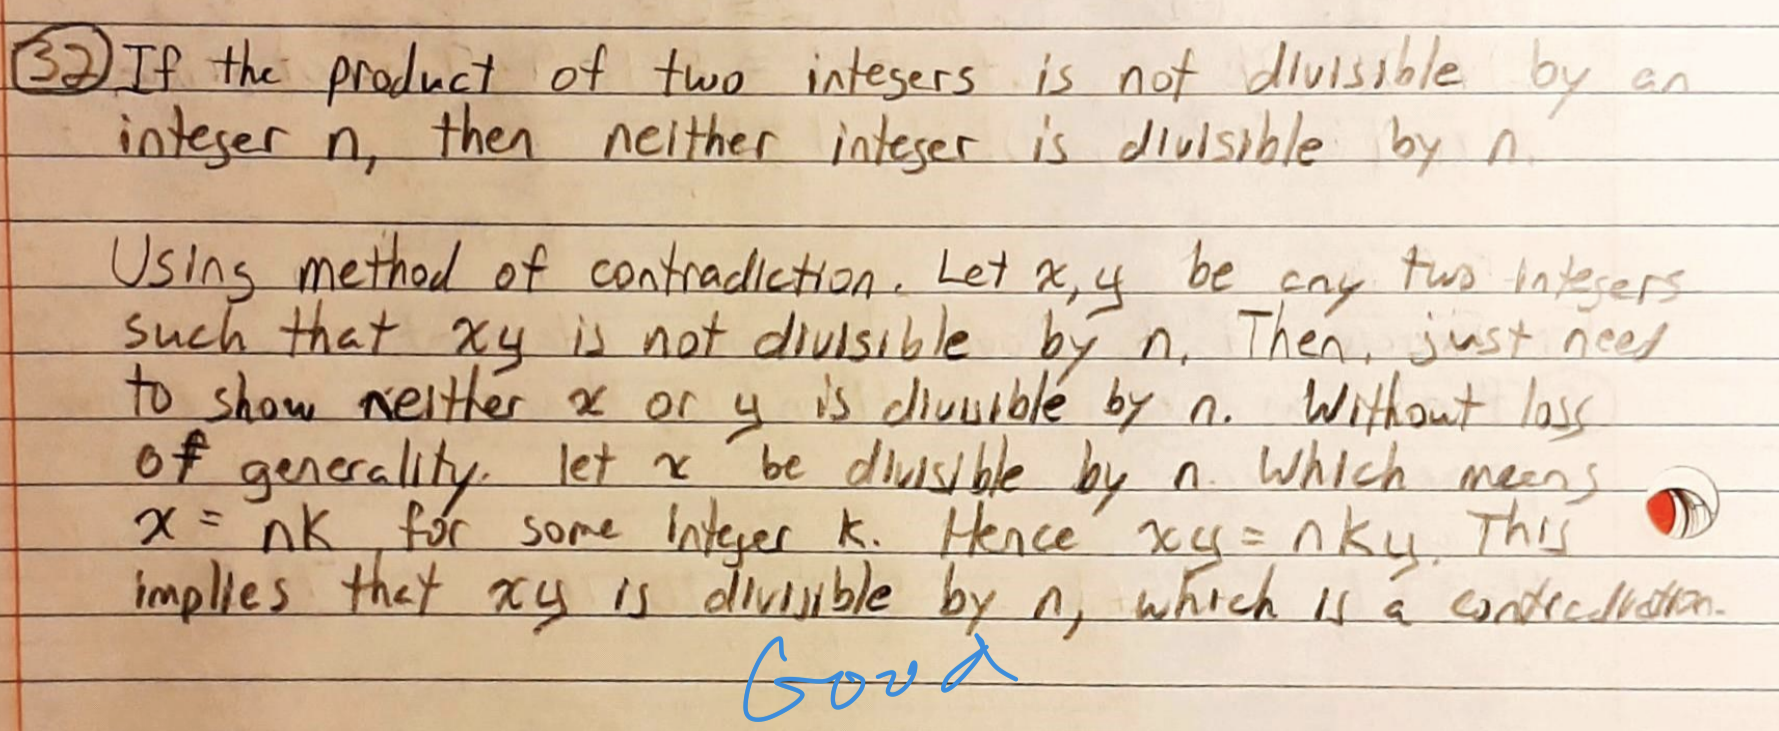 32 If the product of two integers is not divisible by an
integer n, then neither integer is divisible by n.
Using method of contradiction. Let x, y be any two integers
such that xy is not divisible by n. Then, just need
to show neither x or y is divisible by n. Without loss
of generality. let x be divisible by n. Which means
x = nk for some integer k. Hence xy = nky. This
implies that xy is divisible by n, which is a contradiction.
Good